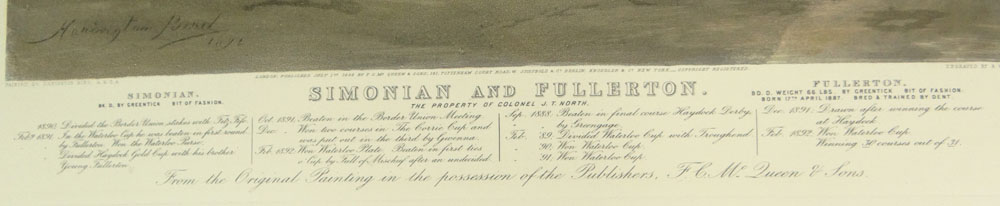 Heywood Hardy
1892
LONDON PUBLISHED JULY 1ST 1892 BY F. C. MC QUEEN & SONS, 181, TOTTENHAM COURT ROAD, W. STIEFBOLD & CO BERLIN, KNOEDLER & CO NEW YORK. COPYRIGHT REGISTERED
PAINTED BY
ENGRAVED BY
SIMONIAN AND FULLERTON.
THE PROPERTY OF COLONEL J. T. NORTH.
SIMONIAN.
BK. D. BY GREENTICK BIT OF FASHION.
1890. Divided the Border Union stakes with Fitz Fife.
Feby 1891. In the Waterloo Cup he was beaten in first round
by Fullerton. Won the Waterloo Purse.
Divided Haydock Gold Cup with his brother
Young Fullerton.
Oct. 1891. Beaten in the Border Union Meeting.
Dec. „ Won two courses in The Corrie Cup and
was put out in the third by Gwenna.
Feb. 1892. Won Waterloo Plate. Beaten in first ties
o Cup by Full of Mischief after an undecided.
Sep. 1888. Beaten in final course Haydock Derby,
by Greengage.
Feb. '89. Divided Waterloo Cup with Troughend.
„ 90. Won Waterloo Cup.
„ 91. Won Waterloo Cup.
FULLERTON.
BD. D. WEIGHT 66 LBS. BY GREENTICK BIT OF FASHION.
BORN 17TH APRIL 1887. BRED & TRAINED BY DENT.
Dec. 1891. Drawn after winning the course
at Haydock
Feb. 1892. Won Waterloo Cup.
Winning 30 courses out of 31.
From the Original Painting in the possession of the Publishers, F. C. Mc Queen & Sons.